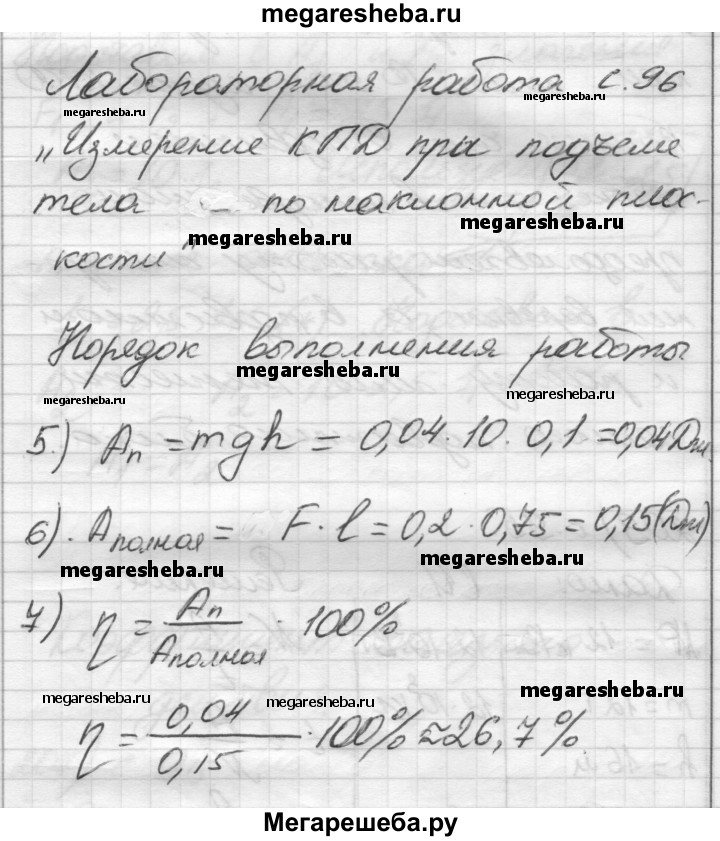 megaresheba.ru
Лабораторная работа с.96
megaresheba.ru megaresheba.ru
„Измерение КПД при подъеме
тела – по наклонной плос-
megaresheba.ru megaresheba.ru
кости"
Порядок выполнения работы
megaresheba.ru
megaresheba.ru megaresheba.ru
5.) Aп = mgh = 0,04·10·0,1=0,04Дж
6). Aполная = F·l=0,2·0,75=0,15(Дж)
megaresheba.ru megaresheba.ru
7) η = Aп / Aполная · 100%
megaresheba.ru megaresheba.ru megaresheba.ru
η = 0,04 / 0,15 · 100% ≈ 26,7%.
Мегарешеба.ру